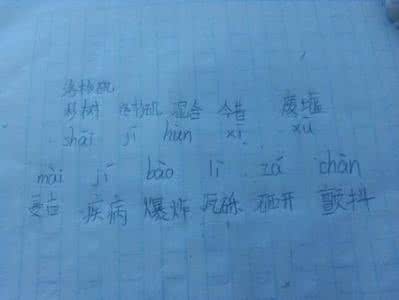 洛杉矶
杉树 洛杉矶 混合 今昔 废墟
shāi jī hùn xī xū
mài jí bào lì zá chàn
疾病 爆炸 瓦砾 砸开 颤抖